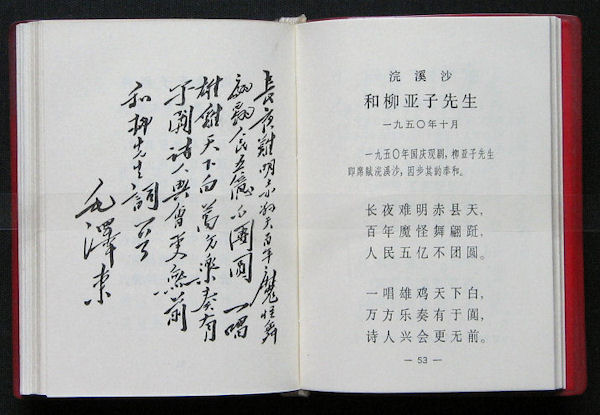 長夜難明赤縣天百年魔怪舞
翩躚人民五億不團圓 一唱
雄雞天下白萬方樂奏有
于闐詩人興會更無前
和柳先生詞
毛澤東
浣溪沙
和柳亚子先生
一九五〇年十月
一九五〇年国庆观剧，柳亚子先生
即席赋浣溪沙，因步其韵奉和。
长夜难明赤县天，
百年魔怪舞翩跹，
人民五亿不团圆。
一唱雄鸡天下白，
万方乐奏有于阗，
诗人兴会更无前。
— 53 —